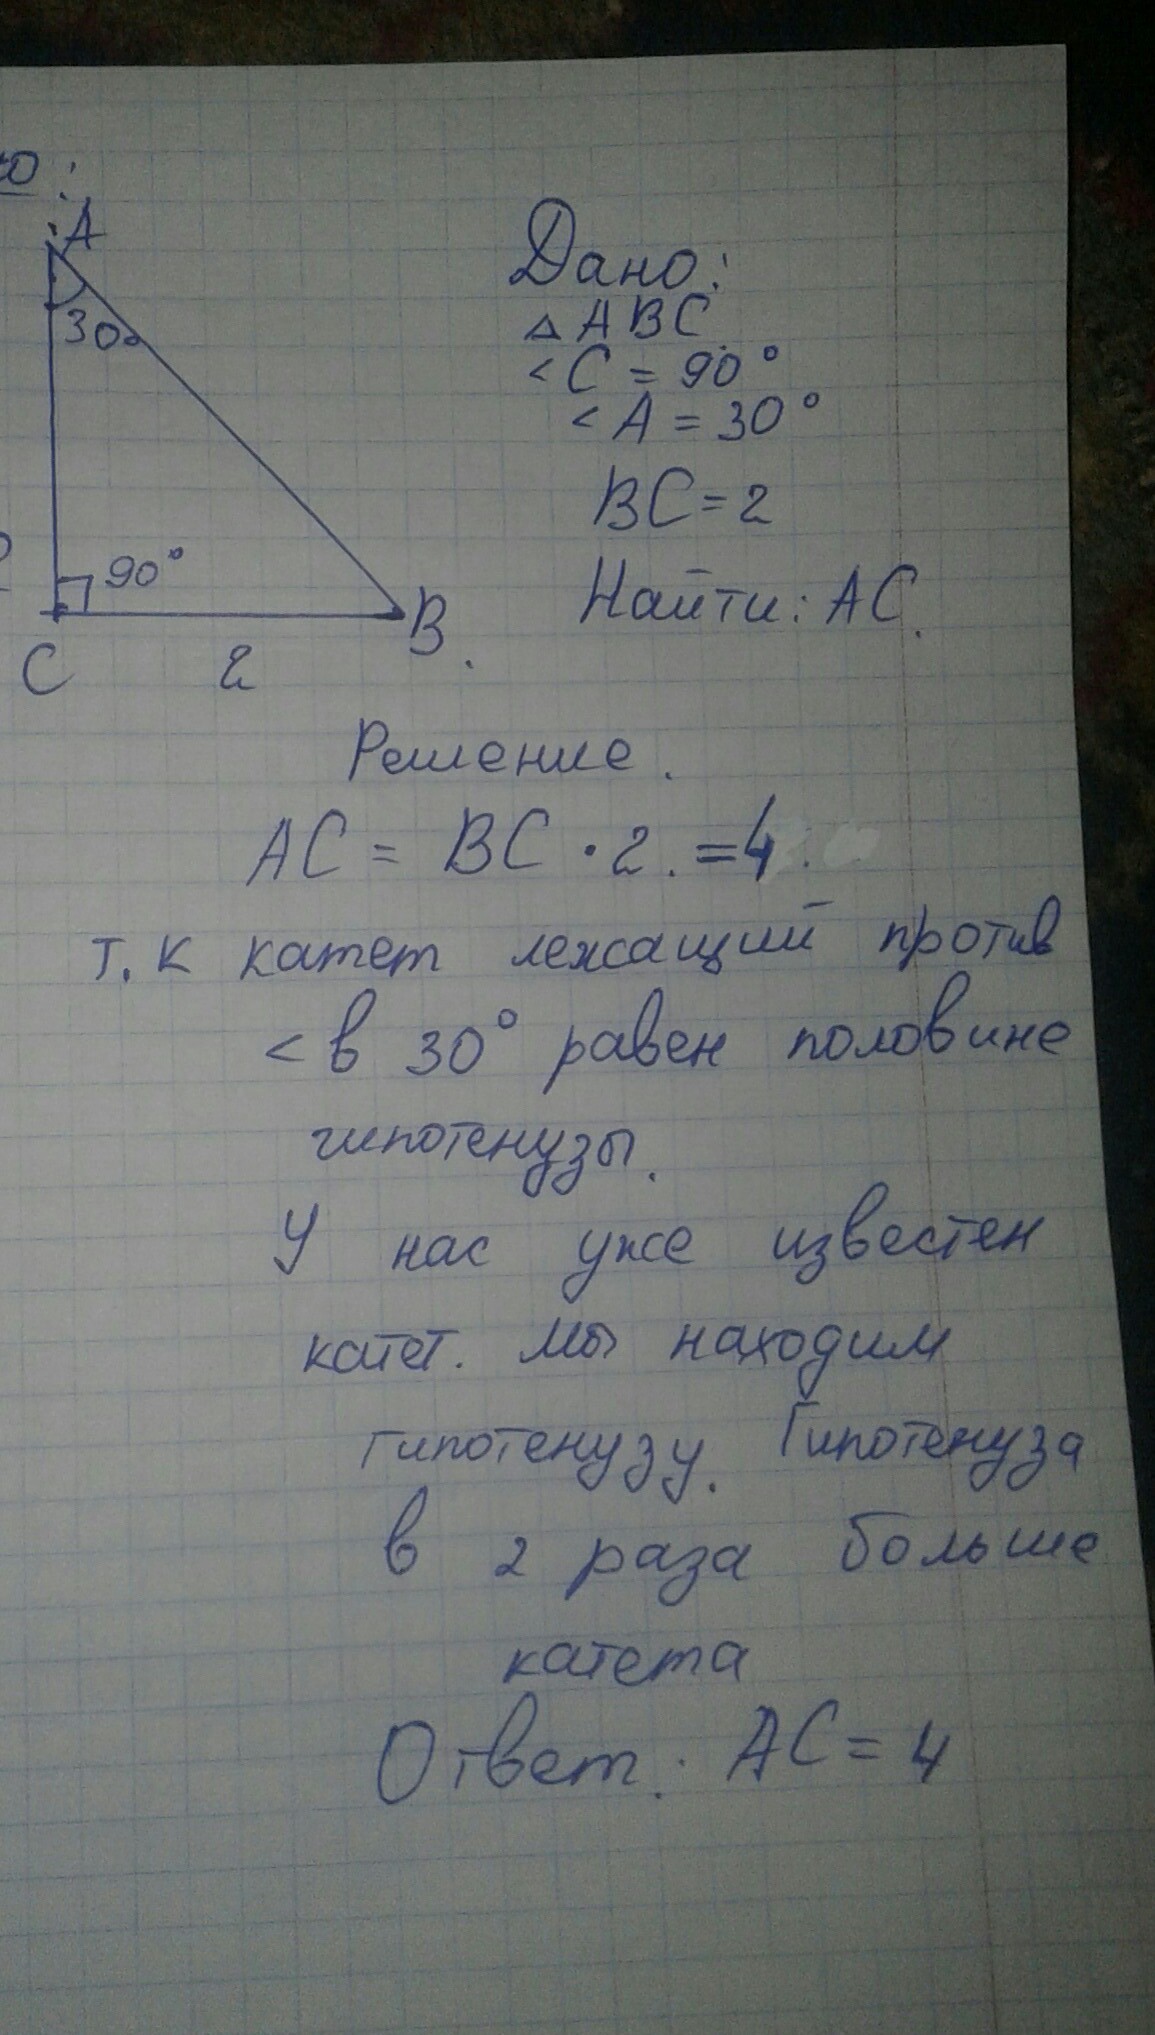 :
A
30°
90°
C
2
B.
Дано:
△ABC
<C = 90°
<A = 30°
BC = 2
Найти: AC.
Решение.
AC = BC · 2. = 4.
т.к катет лежащий против
< в 30° равен половине
гипотенузы.
У нас уже известен
катет. Мы находим
гипотенузу. Гипотенуза
в 2 раза больше
катета
Ответ: AC = 4